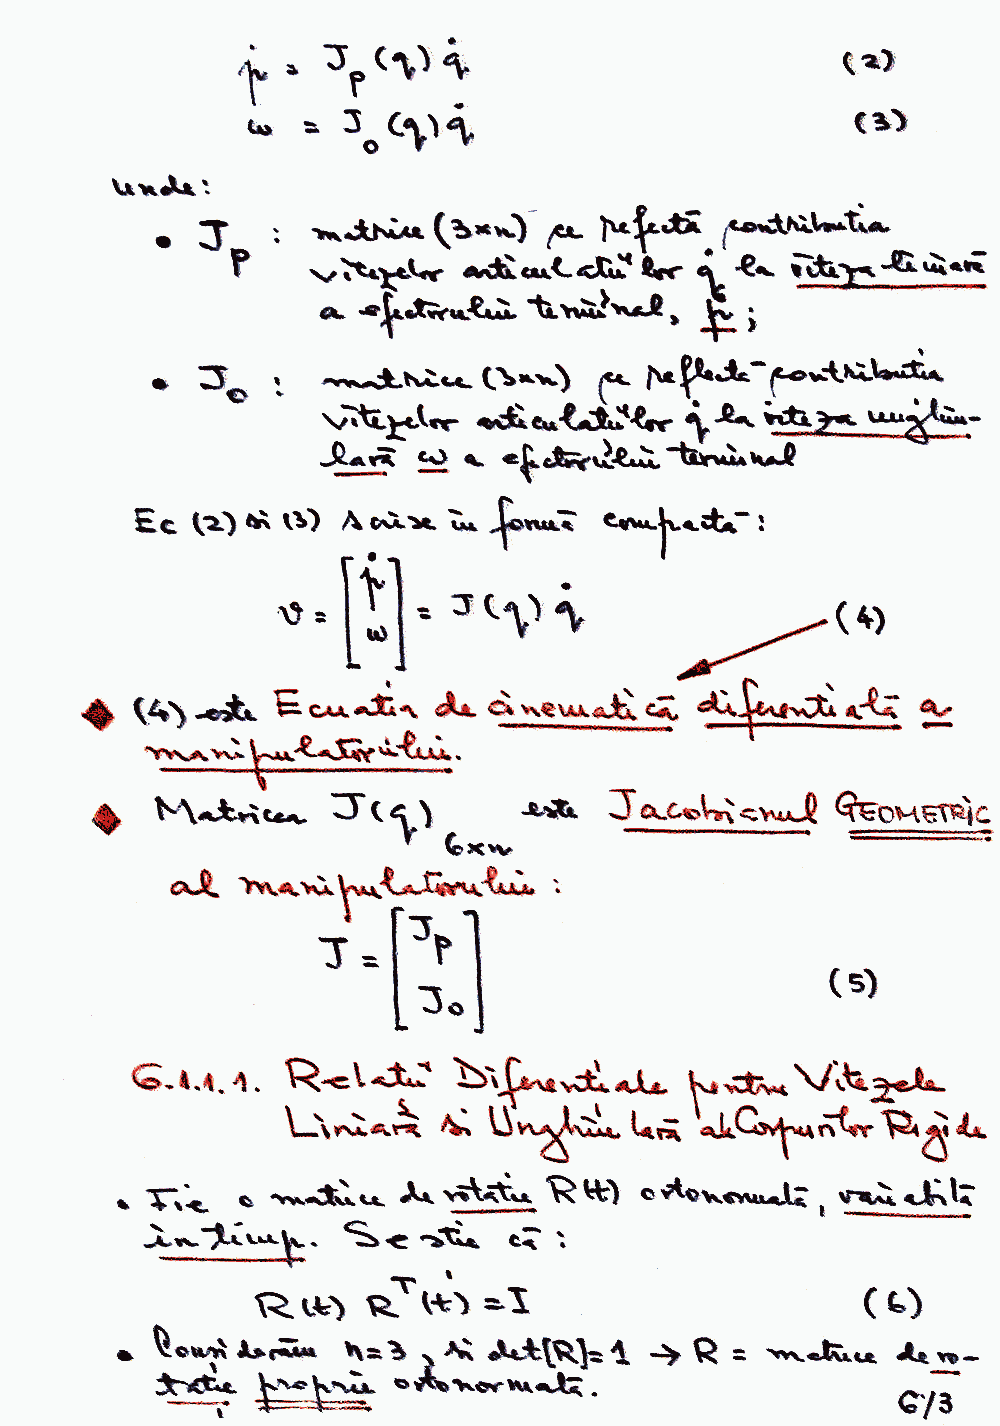 ṗ = J_p (q) q̇ (2)
ω = J_o (q) q̇ (3)
unde:
• J_p : matrice (3×n) ce refectă contributia
vitezelor articulatiilor q̇ la viteza liniară
a efectorului terminal, ṗ ;
• J_o : matrice (3×n) ce reflectă contributia
vitezelor articulatiilor q̇ la viteza unghiu-
lară ω a efectorului terminal
Ec (2) si (3) scrise în formă compactă:
v = [ṗ ω] = J(q) q̇ (4)
◆ (4) este Ecuatia de cinematică diferentială a
manipulatorului.
◆ Matricea J(q)_6×n este Jacobianul GEOMETRIC
al manipulatorului:
J = [J_p J_o] (5)
6.1.1.1. Relatii Diferentiale pentru Vitezele
Liniară si Unghiulară ale Corpurilor Rigide
• Fie o matrice de rotatie R(t) ortonormată, variabilă
în timp. Se stie că:
R(t) R^T(t) = I (6)
• Considerăm n=3, si det[R]=1 → R = matrice de ro-
tatie proprie ortonormată.
6/3